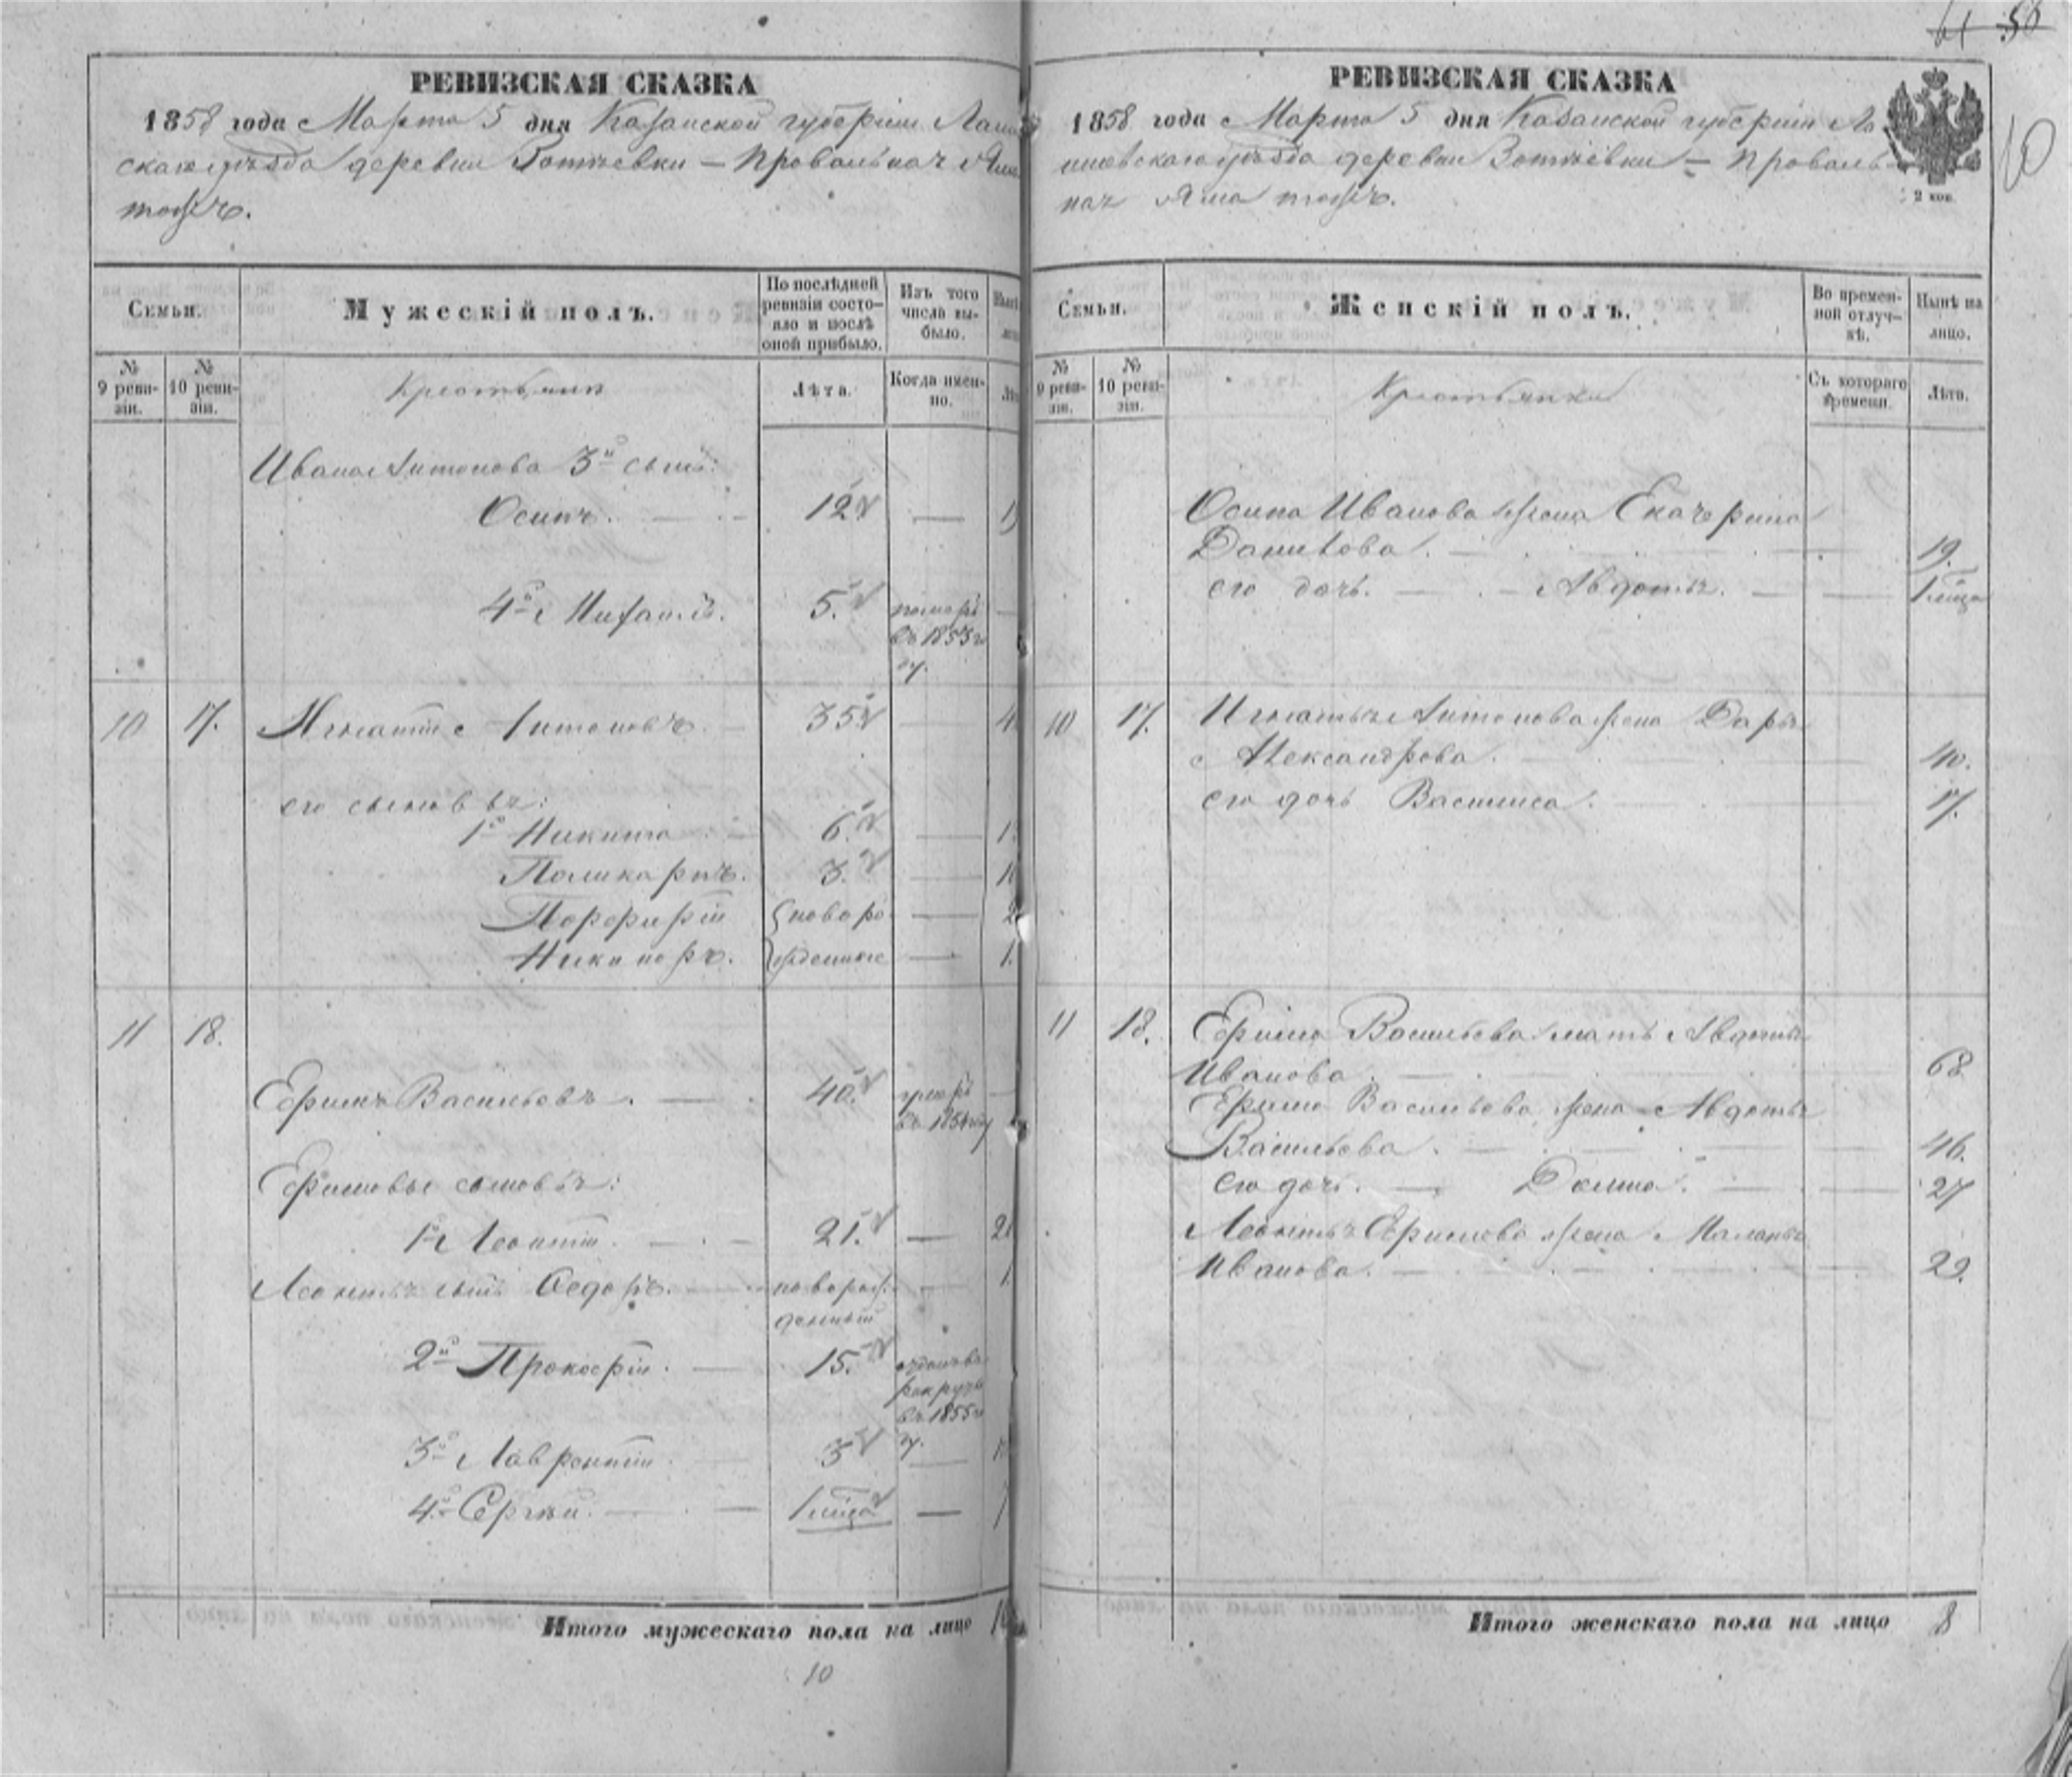 61 56
10
РЕВИЗСКАЯ СКАЗКА
1858 года Марта 5 дня Казанской губерніи Лаи
скаго уѣзда деревни Зотѣевки — Провальная Яма
тожъ.
Семьи.
Мужескій полъ.
По послѣдней ревизіи состояло и послѣ оной прибыло.
Изъ того числа выбыло.
№ 9 ревизіи.
№ 10 ревизіи.
Крестьяне
Лѣта.
Когда именно.
Ивана Антонова 3й сынъ:
Осипъ. 12
4й Михаилъ. 5. померъ
въ 1853 го
ду.
10 17. Игнатій Антоновъ. 35
его сыновья:
1й Никита 6.
Поликарпъ. 3.
Порфирій новоро
Никаноръ. жденные 1.
11 18.
Ефимъ Васильевъ. 40. умеръ
въ 1854 году
Ефимовы сыновья:
1й Леонтій. 21.
Леонтья сынъ Федоръ. новорож
денный
2й Прокофій. 15. отданъ въ
рекруты
въ 1855 го
ду.
3й Лаврентій. 3
4й Сергѣй. 1 мѣсяца
Итого мужескаго пола на лицо
10
РЕВИЗСКАЯ СКАЗКА
2 коп.
1858 года Марта 5 дня Казанской губерніи Ла
ишевскаго уѣзда деревни Зотѣевки — Проваль
ная Яма тожъ.
Семьи.
Женскій полъ.
Во временной отлучкѣ.
Нынѣ на лицо.
№ 9 ревизіи.
№ 10 ревизіи.
Крестьянки
Съ котораго времени.
Лѣта.
Осипа Иванова жена Екатерина
Данилова. 19.
его дочь. Авдотья. 1 мѣсяца
10 17. Игнатья Антонова жена Дарья
Александрова. 40.
его дочь Василиса. 17.
11 18. Ефима Васильева мать Авдотья
Иванова. 68
Ефима Васильева жена Авдотья
Васильева. 46.
его дочь. Домна. 27
Леонтья Ефимова жена Маланья
Иванова. 29.
Итого женскаго пола на лицо 8